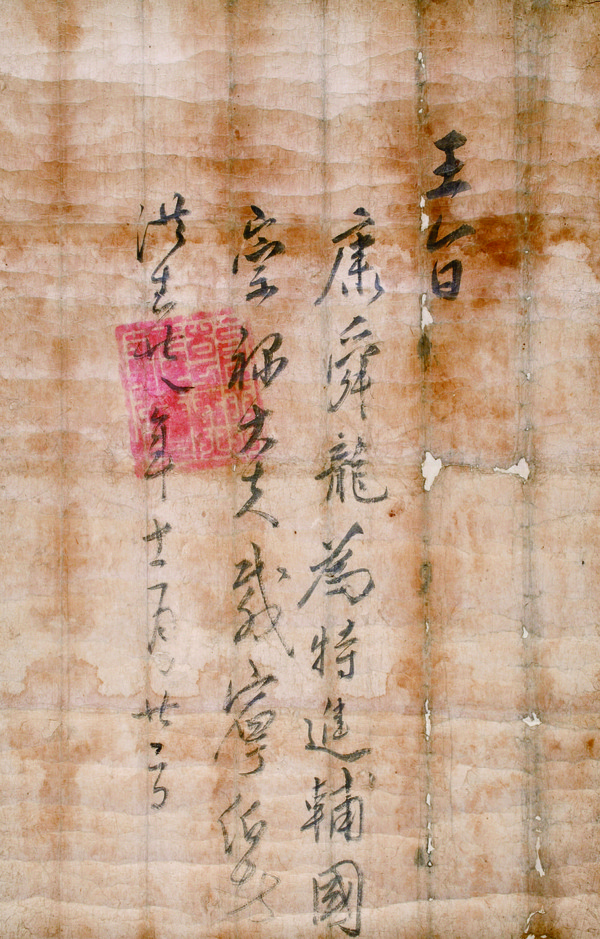 王旨
康舜龍為特進輔國
崇祿大夫載寧伯者
洪武廿八年十二月廿二日